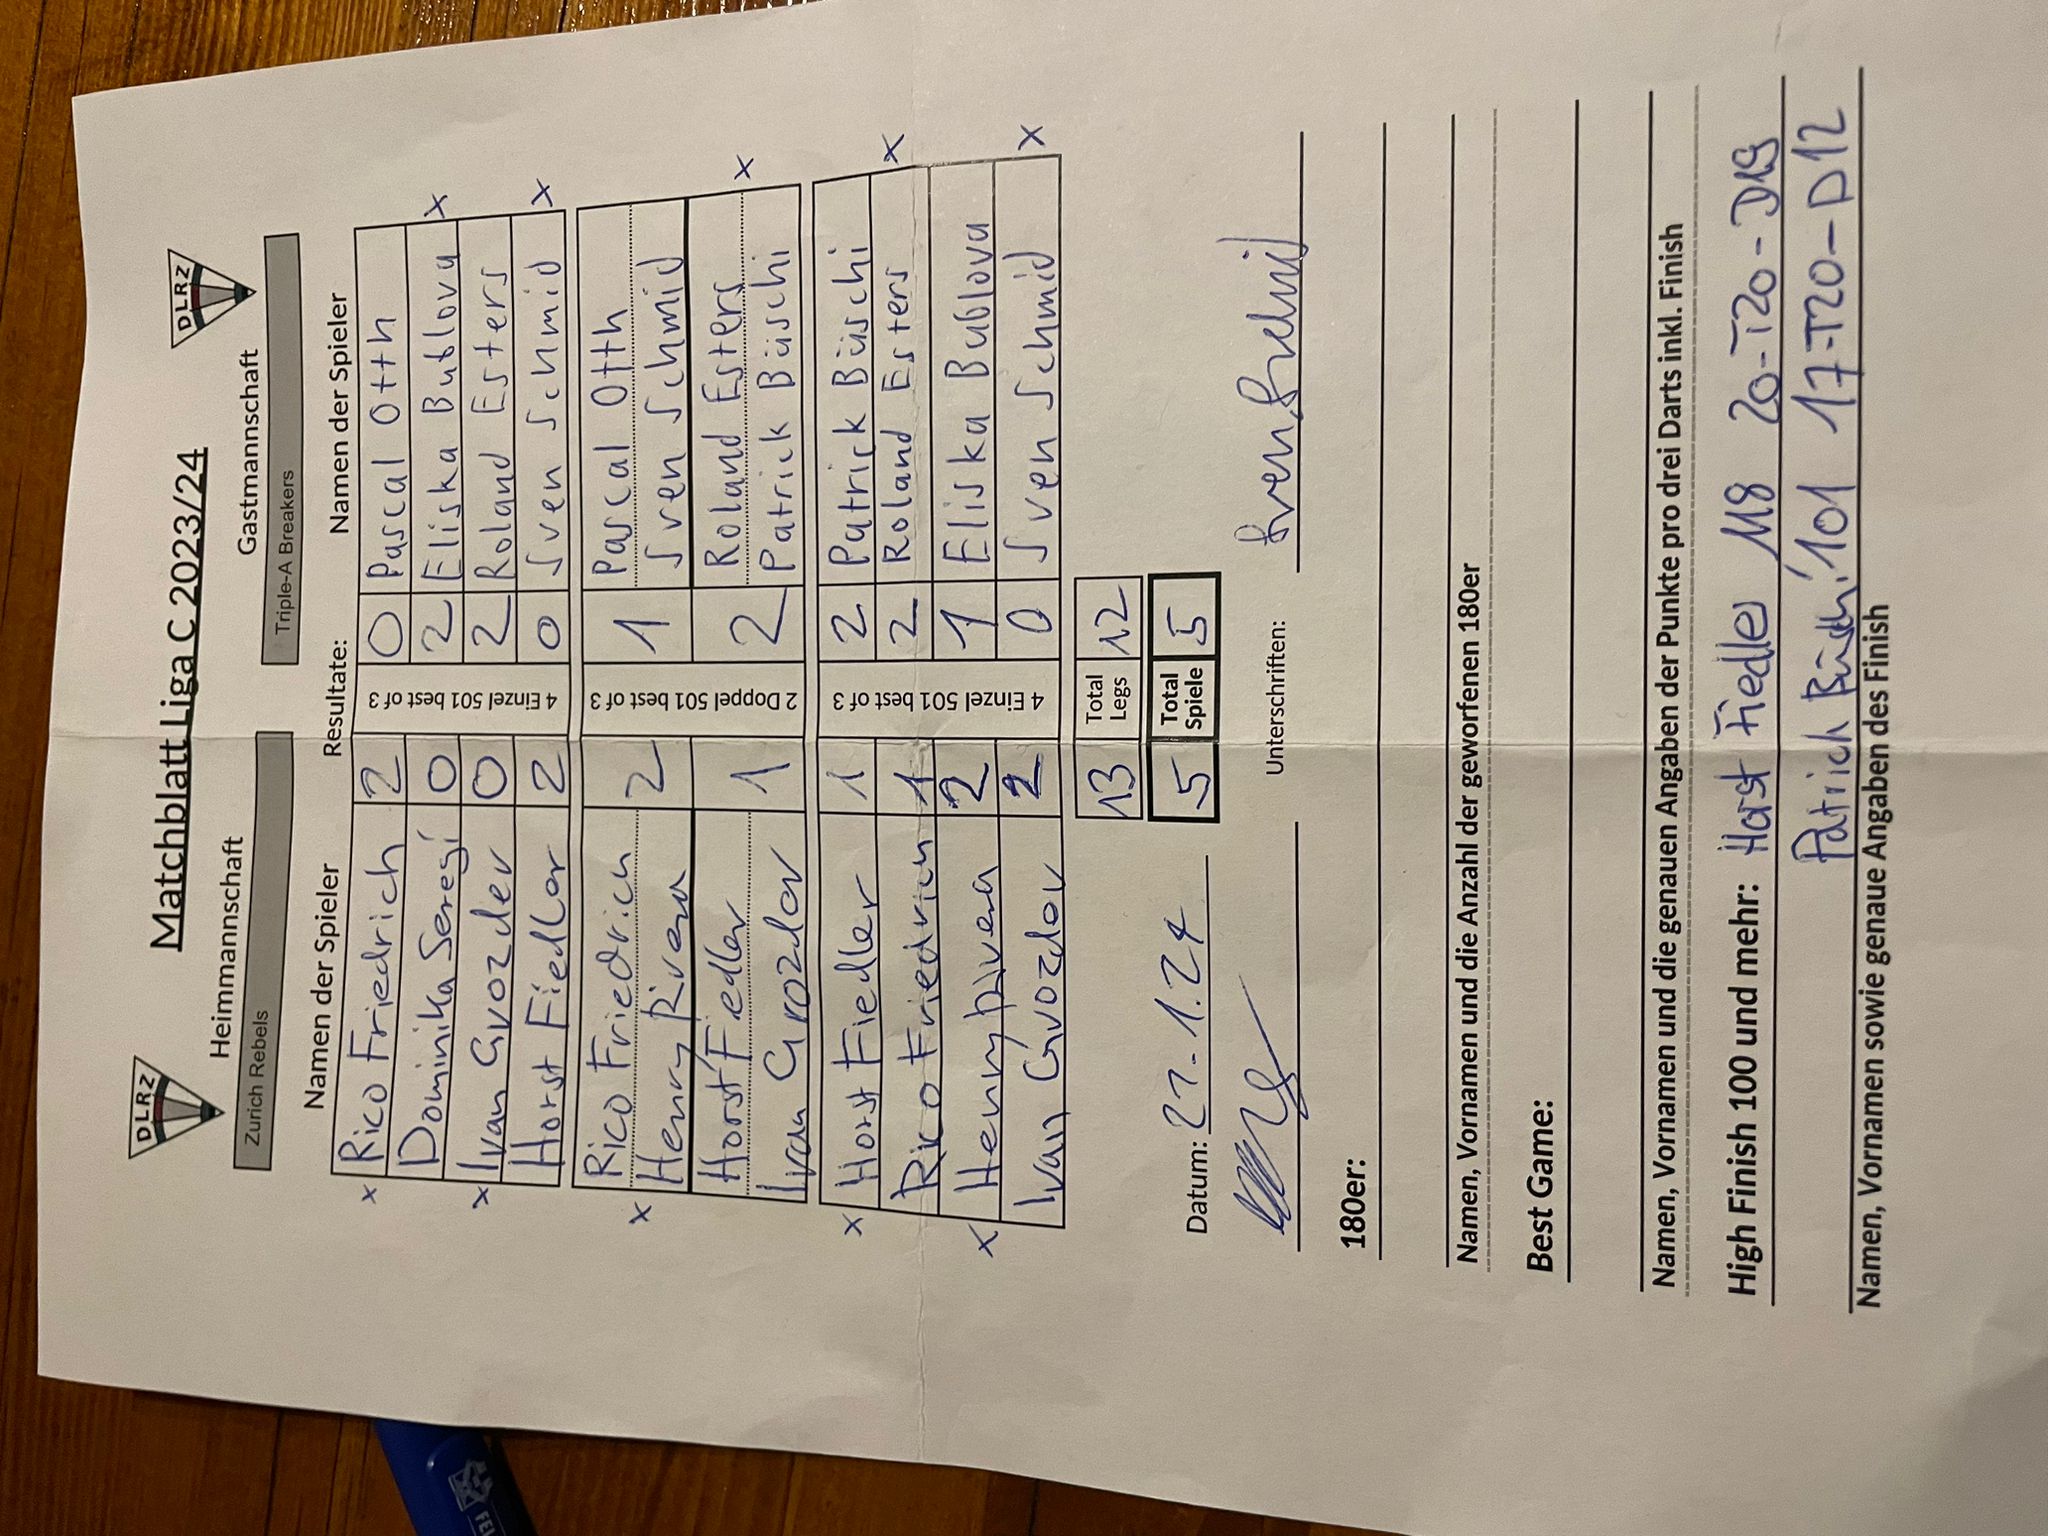 Matchblatt Liga C 2023/24
DLRZ DLRZ
Heimmannschaft Gastmannschaft
Zurich Rebels Triple-A Breakers
Namen der Spieler Resultate: Namen der Spieler
x Rico Friedrich 2 0 Pascal Otth
Dominika Seregi 0 2 Eliska Bublova x
x Ivan Gvozdev 0 2 Roland Esters
Horst Fiedler 2 0 Sven Schmid x
4 Einzel 501 best of 3
Rico Friedrich 2 1 Pascal Otth
x Henry Rivera Sven Schmid
Horst Fiedler 1 2 Roland Esters x
Ivan Gvozdev Patrick Büschi
2 Doppel 501 best of 3
x Horst Fiedler 1 2 Patrick Büschi
Rico Friedrich 1 2 Roland Esters x
x Henry Rivera 2 1 Eliska Bublova
Ivan Gvozdev 2 0 Sven Schmid x
4 Einzel 501 best of 3
13 Total Legs 12
Datum: 21.1.24 5 Total Spiele 5
Unterschriften:
Sven Schmid
180er:
Namen, Vornamen und die Anzahl der geworfenen 180er
Best Game:
Namen, Vornamen und die genauen Angaben der Punkte pro drei Darts inkl. Finish
High Finish 100 und mehr: Horst Fiedler 118 20-T20-D19
Patrick Büschi 101 17-T20-D12
Namen, Vornamen sowie genaue Angaben des Finish